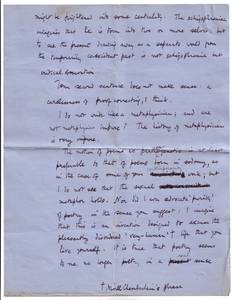 might be frightened into some centrality. The schizophrenic
imagines that he is torn into two or more selves, but
to see the present drawing away as a separate self from
the temporarily coexistent past is not schizophrenia but
critical
Your second sentence does not make sense: a
carelessness of proof-correcting, I think.
I do not write like a metaphysician; and are
not metaphysicians impure? The history of metaphysicians
is very impure
The notion of poems as is at least
preferable to that of poems born in sodomy, as
in the case of some of your work; but
I do not see that the sexual
metaphor holds. Nor did I ever advocate 'purity'
of poetry in the sense you suggest; I imagine
that this is an invention designed to excuse the
pleasantly diminished 'very-human'† life that you
live yourself. It is true that poetry seems
to me no longer poetry, in a sense
† Chamberlain's phrase